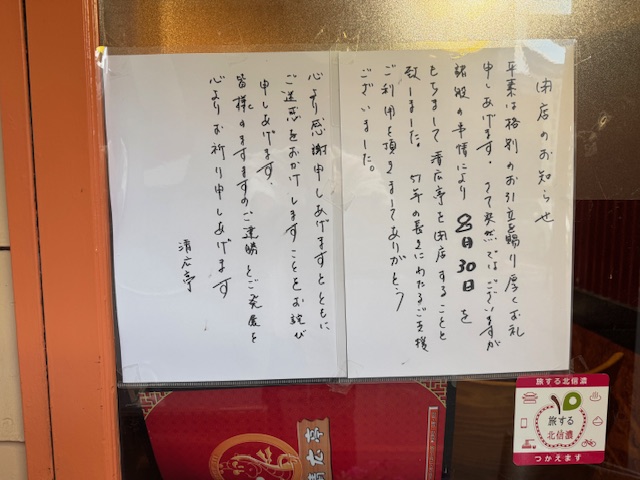 閉店のお知らせ
平素は格別のお引立を賜り厚くお礼
申しあげます。さて突然ではございますが
諸般の事情により 8月30日 を
もちまして清広亭を閉店することと
致しました。51年の長きにわたるご支援
ご利用を頂きましてありがとう
ございました。
心より感謝申しあげますとともに
ご迷惑をおかけしますことをお詫び
申しあげます。
皆様のますますのご健勝とご発展を
心よりお祈り申しあげます
清広亭
旅する北信濃
旅する
北信濃
つかえます